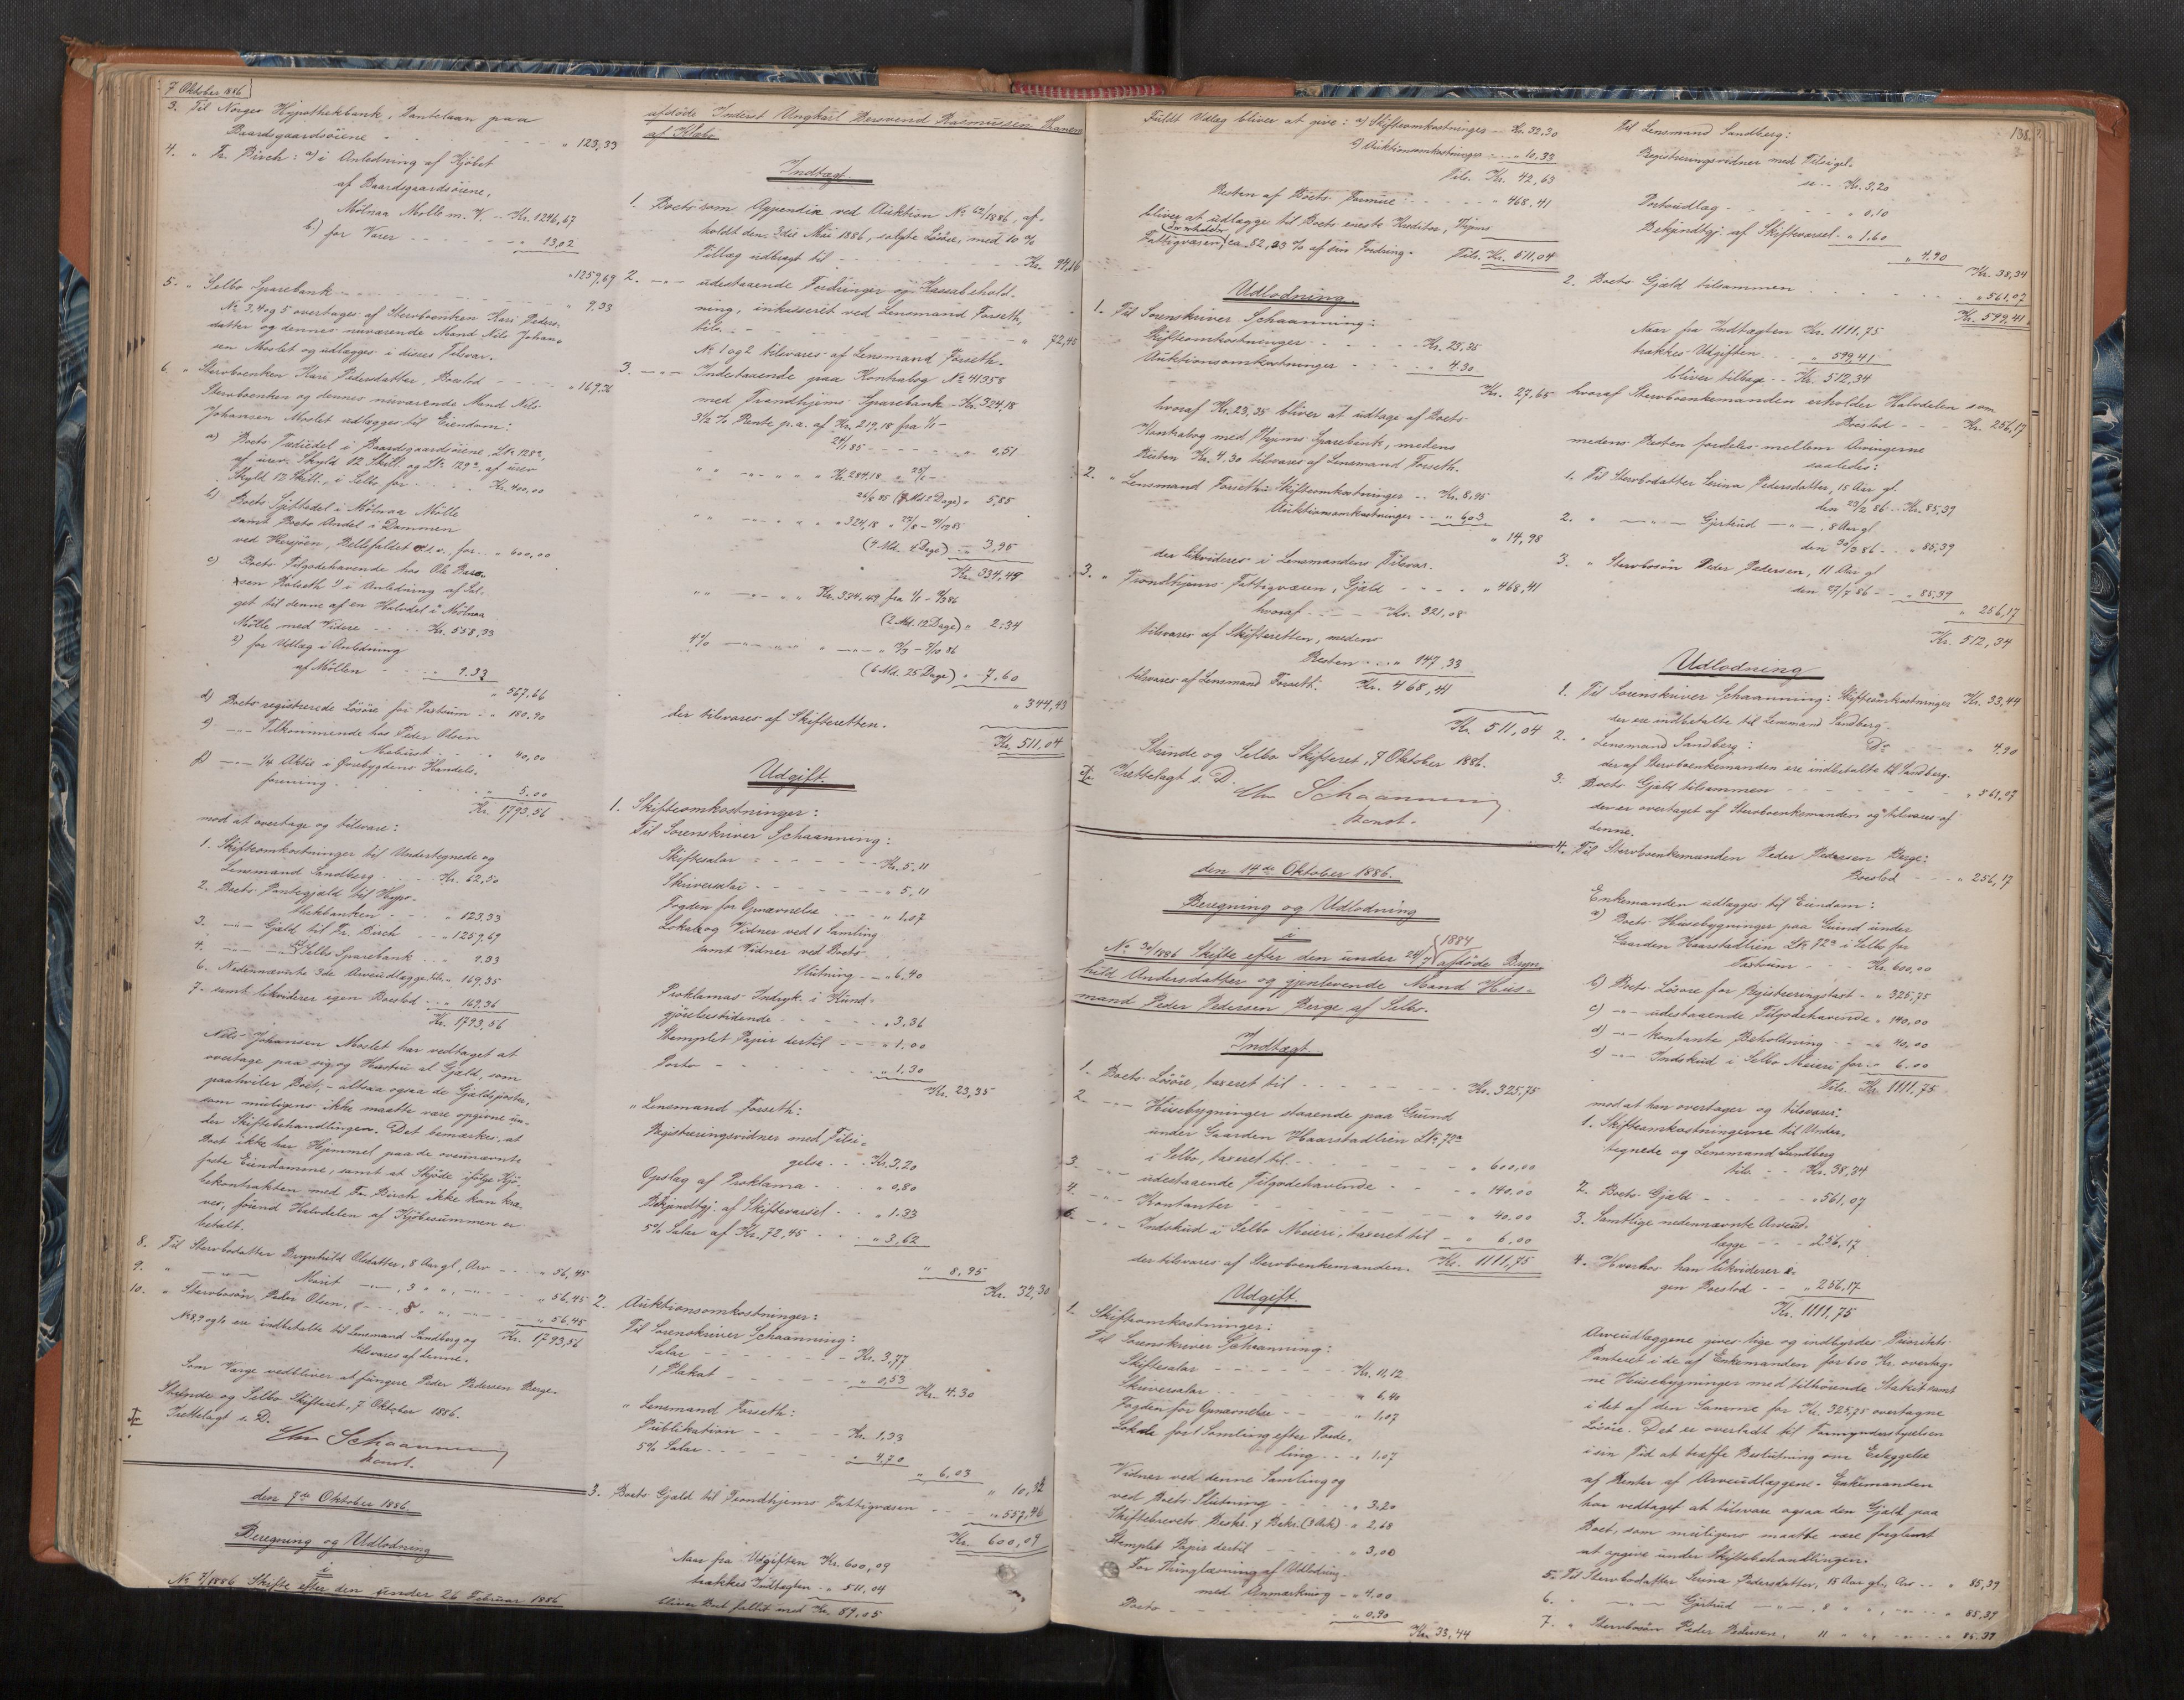 7 Oktober 1886
3. Til Norges Hypothekbank, Pantelaan paa
Baardsgaardsöiene - - - - - " 123,33
4. " Fr. Birch: a) i Anledning af Kjöbet
af Baardsgaardsöiene,
Mölnaa Mølle m. V. - - Kr. 1246,67
b) for Varer - - - - - " 13,02
" 1259,69
5. " Selbo Sparebank - - - - - " 9,33
No 3, 4 og 5 overtages af Stervboenken Kari Peders-
datter og dennes nuværende Mand Nils Johan-
sen Moslet og udlægges i disses Tilsvar.
6. " Stervboenken Kari Pedersdatter, Boeslod - - - " 169,36
Stervboenken og dennes nuværende Mand Nils
Johansen Moslet udlægges til Eiendom:
a) Boets Trediedel i Baardsgaardsöiene, Lb. 128a,
af urev. Skyld 12 Skill. og Lb. 129a, af urev
Skyld 12 Skill., i Selbo for - - Kr. 400,00
b) Boets Sjettedel i Mölnaa Mölle
samt Boets Andel i Dammen
ved Hersjöen, Bellefaldet o.s.v., for - - " 600,00
c) Boets Tilgodehavende hos Ole
sen 1) i Anledning af Sal-
get til denne af en Halvdel i Mölnaa
Mölle med Videre - - Kr. 558,33
2) for Udlæg i Anledning
af Möllen - - - " 9.33
" 567,66
d) Boets registrerede Lösöre for Taxtsum - - " 180.90
e) - " - Tilkommende hos Peder Olsen
- - - " 40,00
f) - " - 1/4 Aktie i Övrebygdens Handels-
forening - - - - - " 5.00
Kr. 1793,56
mod at overtage og tilsvare:
1. Skifteomkostninger til Undertegnede og
Lensmand Sandberg - - Kr. 62,50
2. Boets Pantegjæld til Hypo-
thekbanken - - - " 123,33
3. - " - Gjæld til Fr. Birch - - " 1259,69
4. - " - til Selbo Sparebank - - " 9.33
6. Nedennævnte 3de Arveudlægge tils. " 169,35
7. samt likviderer egen Boeslod - - " 169,36
Kr. 1793,56
Nils Johansen Moslet har vedtaget at
overtage paa sig og Hustru al Gjæld, som
paahviler Boet, - altsaa ogsaa de Gjældsposter,
som muligens ikke maatte være opgivne un-
der Skiftebehandlingen. Det bemærkes, at
Boet ikke har Hjemmel paa de ovennævnte
faste Eiendomme, samt at Skjöde ifölge Kjö-
bekontrakten med Fr. Birch ikke kan kræ-
ves, förend Halvdelen af Kjöbesummen er
betalt.
8. Til Stervbodatter Brynhild Olsdatter, 8 Aar gl., Arv - - " 56,45
9. " - " - Marit - " - , 3 " " , - " - - - " 56,45
10. " Stervbosön Peder Olsen, - - 5 " " , - " - - - " 56,45
No 8, 9 og 10 ere indbetalte til Lensmand Sandberg og Kr. 1793,56
tilsvares af denne.
Som Værge vedbliver at fungere Peder Pedersen Berge.
Strinde og Selbo Skifteret, 7 Oktober 1886.
Irettelagt s. D.
Chr Schaanning
Konst.
den 7de Oktober 1886.
Beregning og Udlodning
i
No 7/1886 Skifte efter den under 26 Februar 1886
afdöde Inderst Ungkarl Bersvend Rasmussen
af Klæbo
Indtægt
1. Boets som Appendix ved Auktion No 62/1886, af-
holdt den 3die Mai 1886, solgte Lösöre, med 10 %
Tillæg udbragt til - - - - Kr. 94,16
2. - " - udestaaende Fordringer og Kassabehold-
ning, inkasseret ved Lensmand Forseth,
tils. - - - - - " 72,45
No 1 og 2 tilsvares af Lensmand Forseth.
3. - " - Indestaaende paa Kontrabog No 41358
med Trondhjems Sparebank - Kr. 324,18
3 1/2 % Rente p.a. af Kr. 219,18 fra 1/1 -
24/1 85 - - - - - " 0,51
" " - " - " " Kr. 284.18 " 25/1 -
26/8 85 (7 Md. 2 Dage) " 5,85
" " - " - " " " 324,18 " 27/8 - 31/12 85
(4 Md. 4 Dage) - - " 3,95
Kr. 334,49
" " - " - " " Kr. 334,49 fra 1/1 - 12/3 86
(2 Md. 12 Dage) " 2.34
4 % - " - " " " - " - " 13/3 - 7/10 86
(6 Md. 25 Dage) " 7,60
" 344,43
der tilsvares af Skifteretten.
Kr. 511,04
Udgift.
1. Skifteomkostninger:
Til Sorenskriver Schaanning:
Skiftesalær - - - - - Kr. 5,11
Skriversalær - - - - - " 5,11
Fogden for Opnævnelse - - - " 1,07
Lokale og Vidner ved 1 Samling
samt Vidner ved Boets
Slutning - - " 6.40
Proklamas Indryk. i Kund-
gjörelsestidende - - - - " 3,36
Stemplet Papir dertil - - - " 1,00
Porto - - - - - " 1.30
Kr. 23,35
" Lensmand Forseth:
Registreringsvidner med Tilsi-
gelse - - - Kr. 3,20
Opslag af Proklama - - - " 0,80
Bekjendtgj. af Skiftevarsel - - " 1.33
5 % Salær af Kr. 72,45 - - - " 3,62
" 8,95
Kr. 32,30
2. Auktionsomkostninger:
Til Sorenskriver Schaanning:
Salær - - - - - Kr. 3,77
1 Plakat - - - - - " 0,53
Kr. 4.30
" Lensmand Forseth:
Publikation - - - - Kr. 1,33
5 % Salær - - - - - " 4,70
" 6,03
" 10,33
3. Boets Gjæld til Trondhjems Fattigvæsen - - " 557,46
Kr. 600,09
Naar fra Udgiften Kr. 600,09
trækkes Indtægten - " 511,04
bliver Boet fallit med Kr. 89,05
138.
Fuldt Udlæg bliver at give: a) Skifteomkostninger - - Kr. 32,30
b) Auktionsomkostninger - - - " 10,33
Tils. Kr. 42,63
Resten af Boets Formue - - - - - " 468.41
bliver at udlægge til Boets eneste Kreditor, Thjems
Fattigvæsen, der erholder ca. 82,03 % af sin Fordring. Tils. Kr. 511,04
Udlodning.
1. Til Sorenskriver Schaanning:
Skifteomkostninger - - - - - Kr. 23,35
Auktionsomkostninger - - - - " 4.30
Kr. 27,65
hvoraf Kr. 23,35 bliver at udtage af Boets
Kontrabog med Thjems Sparebank, medens
Resten Kr. 4.30 tilsvares af Lensmand Forseth.
2. " Lensmand Forseth: Skifteomkostninger - - Kr. 8,95
Auktionsomkostninger - - " 6,03
" 14,98
der likvideres i Lensmandens Tilsvar.
3. " Trondhjems Fattigvæsen, Gjæld - - - - " 468,41
hvoraf - - - Kr. 321,08
tilsvares af Skifteretten, medens
Resten - - " 147.33
tilsvares af Lensmand Forseth. Kr. 468,41
Kr. 511,04
Strinde og Selbo Skifteret, 7 Oktober 1886.
Irettelagt s. D.
Chr Schaanning
Konst.
den 14de Oktober 1886.
Beregning og Udlodning
i
No 30/1886 Skifte efter den under 24/7 1884 afdöde Bryn-
hild Andersdatter og gjenlevende Mand Hus-
mand Peder Pedersen Berge af Selbo.
Indtægt.
1. Boets Lösöre, taxeret til - - - - - Kr. 325,75
2. - " - Husebygninger staaende paa Grund
under Gaarden Haarstadlien Lb. 72a
i Selbo, taxeret til - - - - - " 600,00
3. - " - udestaaende Tilgodehavende - - - " 140,00
4. - " - Kontanter - - - - - " 40,00
5. - " - Indskud i Selbo Meieri, taxeret til - " 6.00
der tilsvares af Stervboenkemanden. Kr. 1111,75
Udgift.
1. Skifteomkostninger:
Til Sorenskriver Schaanning:
Skiftesalær - - - - - Kr. 11,12
Skriversalær - - - - - " 6,40
Fogden for Opnævnelse - - - " 1,07
Lokale for 1 Samling efter Forde-
ling - - " 1,07
Vidner ved denne Samling og
ved Boets Slutning - - - " 3,20
Skiftebrevets Beskr. & Bekr. (3 Ark) - " 2,68
Stemplet Papir dertil - - - " 3,00
For Thinglæsning af Udlodning
med Anmærkning - " 4.00
Porto - - - - - " 0,90
Kr. 33,44
Til Lensmand Sandberg:
Registreringsvidner med Tilsigel-
se - - Kr. 3,20
Portoudlæg - - - - - " 0.10
Bekjendtgj. af Skiftevarsel - - " 1.60
" 4.90
Kr. 38,34
2. Boets Gjæld tilsammen - - - - - " 561,07
Kr. 599,41
Naar fra Indtægten Kr. 1111.75
trækkes Udgiften - - " 599,41
bliver tilbage - - Kr. 512,34
hvoraf Stervboenkemanden erholder Halvdelen som
Boeslod - - - Kr. 256,17
medens Resten fordeles mellem Arvingerne
saaledes:
1. Til Stervbodatter Serina Pedersdatter, 15 Aar gl.
den 23/2 86 - - Kr. 85,39
2. " - " - Gjertrud - " - , 8 Aar gl
den 30/3 86 - - " 85,39
3. " Stervbosön Peder Pedersen, 11 Aar gl
den 27/7 86 - - " 85,39
" 256,17
Kr. 512,34
Udlodning
1. Til Sorenskriver Schaanning: Skifteomkostninger Kr. 33,44
der ere indbetalte til Lensmand Sandberg.
2. " Lensmand Sandberg: Do - - " 4.90
der af Stervboenkemanden ere indbetalte til Sandberg.
3. Boets Gjæld tilsammen - - - - - " 561,07
der er overtaget af Stervboenkemanden og tilsvares af
denne.
4. Til Stervboenkemanden Peder Pedersen Berge:
Boeslod - - - " 256,17
Enkemanden udlægges til Eiendom:
a) Boets Husebygninger paa Grund under
Gaarden Haarstadlien Lb. 72a i Selbo for
Taxtsum - - - Kr. 600,00
b) Boets Lösöre for Registreringstaxt - " 325,75
c) - " - udestaaende Tilgodehavende " 140,00
d) - " - kontante Beholdning - - " 40,00
e) - " - Indskud i Selbo Meieri for - " 6.00
Tils. Kr. 1111,75
mod at han overtager og tilsvarer:
1. Skifteomkostningerne til Under-
tegnede og Lensmand Sandberg
tils. - - Kr. 38,34
2. Boets Gjæld - - - - - " 561,07
3. Samtlige nedennævnte Arveud-
lægge - - - " 256,17
4. Hvorhos han likviderer e-
gen Boeslod - - " 256,17
Kr. 1111,75
Arveudlæggene gives lige og indbyrdes Prioritets
Panteret i de af Enkemanden for 600 Kr. overtag-
ne Husebygninger med tilhörende Stakit samt
i det af den Samme for Kr. 325,75 overtagne
Lösöre. Det er overladt til Formynderstyrelsen
i sin Tid at træffe Beslutning om Erlæggelse
af Renter af Arveudlæggene. Enkemanden
har vedtaget at tilsvare ogsaa den Gjæld paa
Boet, som muligens maatte være forglemt
at opgive under Skiftebehandlingen.
5. Til Stervbodatter Serina Pedersdatter, 15 Aar gl., Arv - - " 85,39
6. " - " - Gjertrud - " - , 8 " " , - " - - " 85,39
7. " Stervbosön Peder Pedersen, 11 " " , - " - - " 85.39